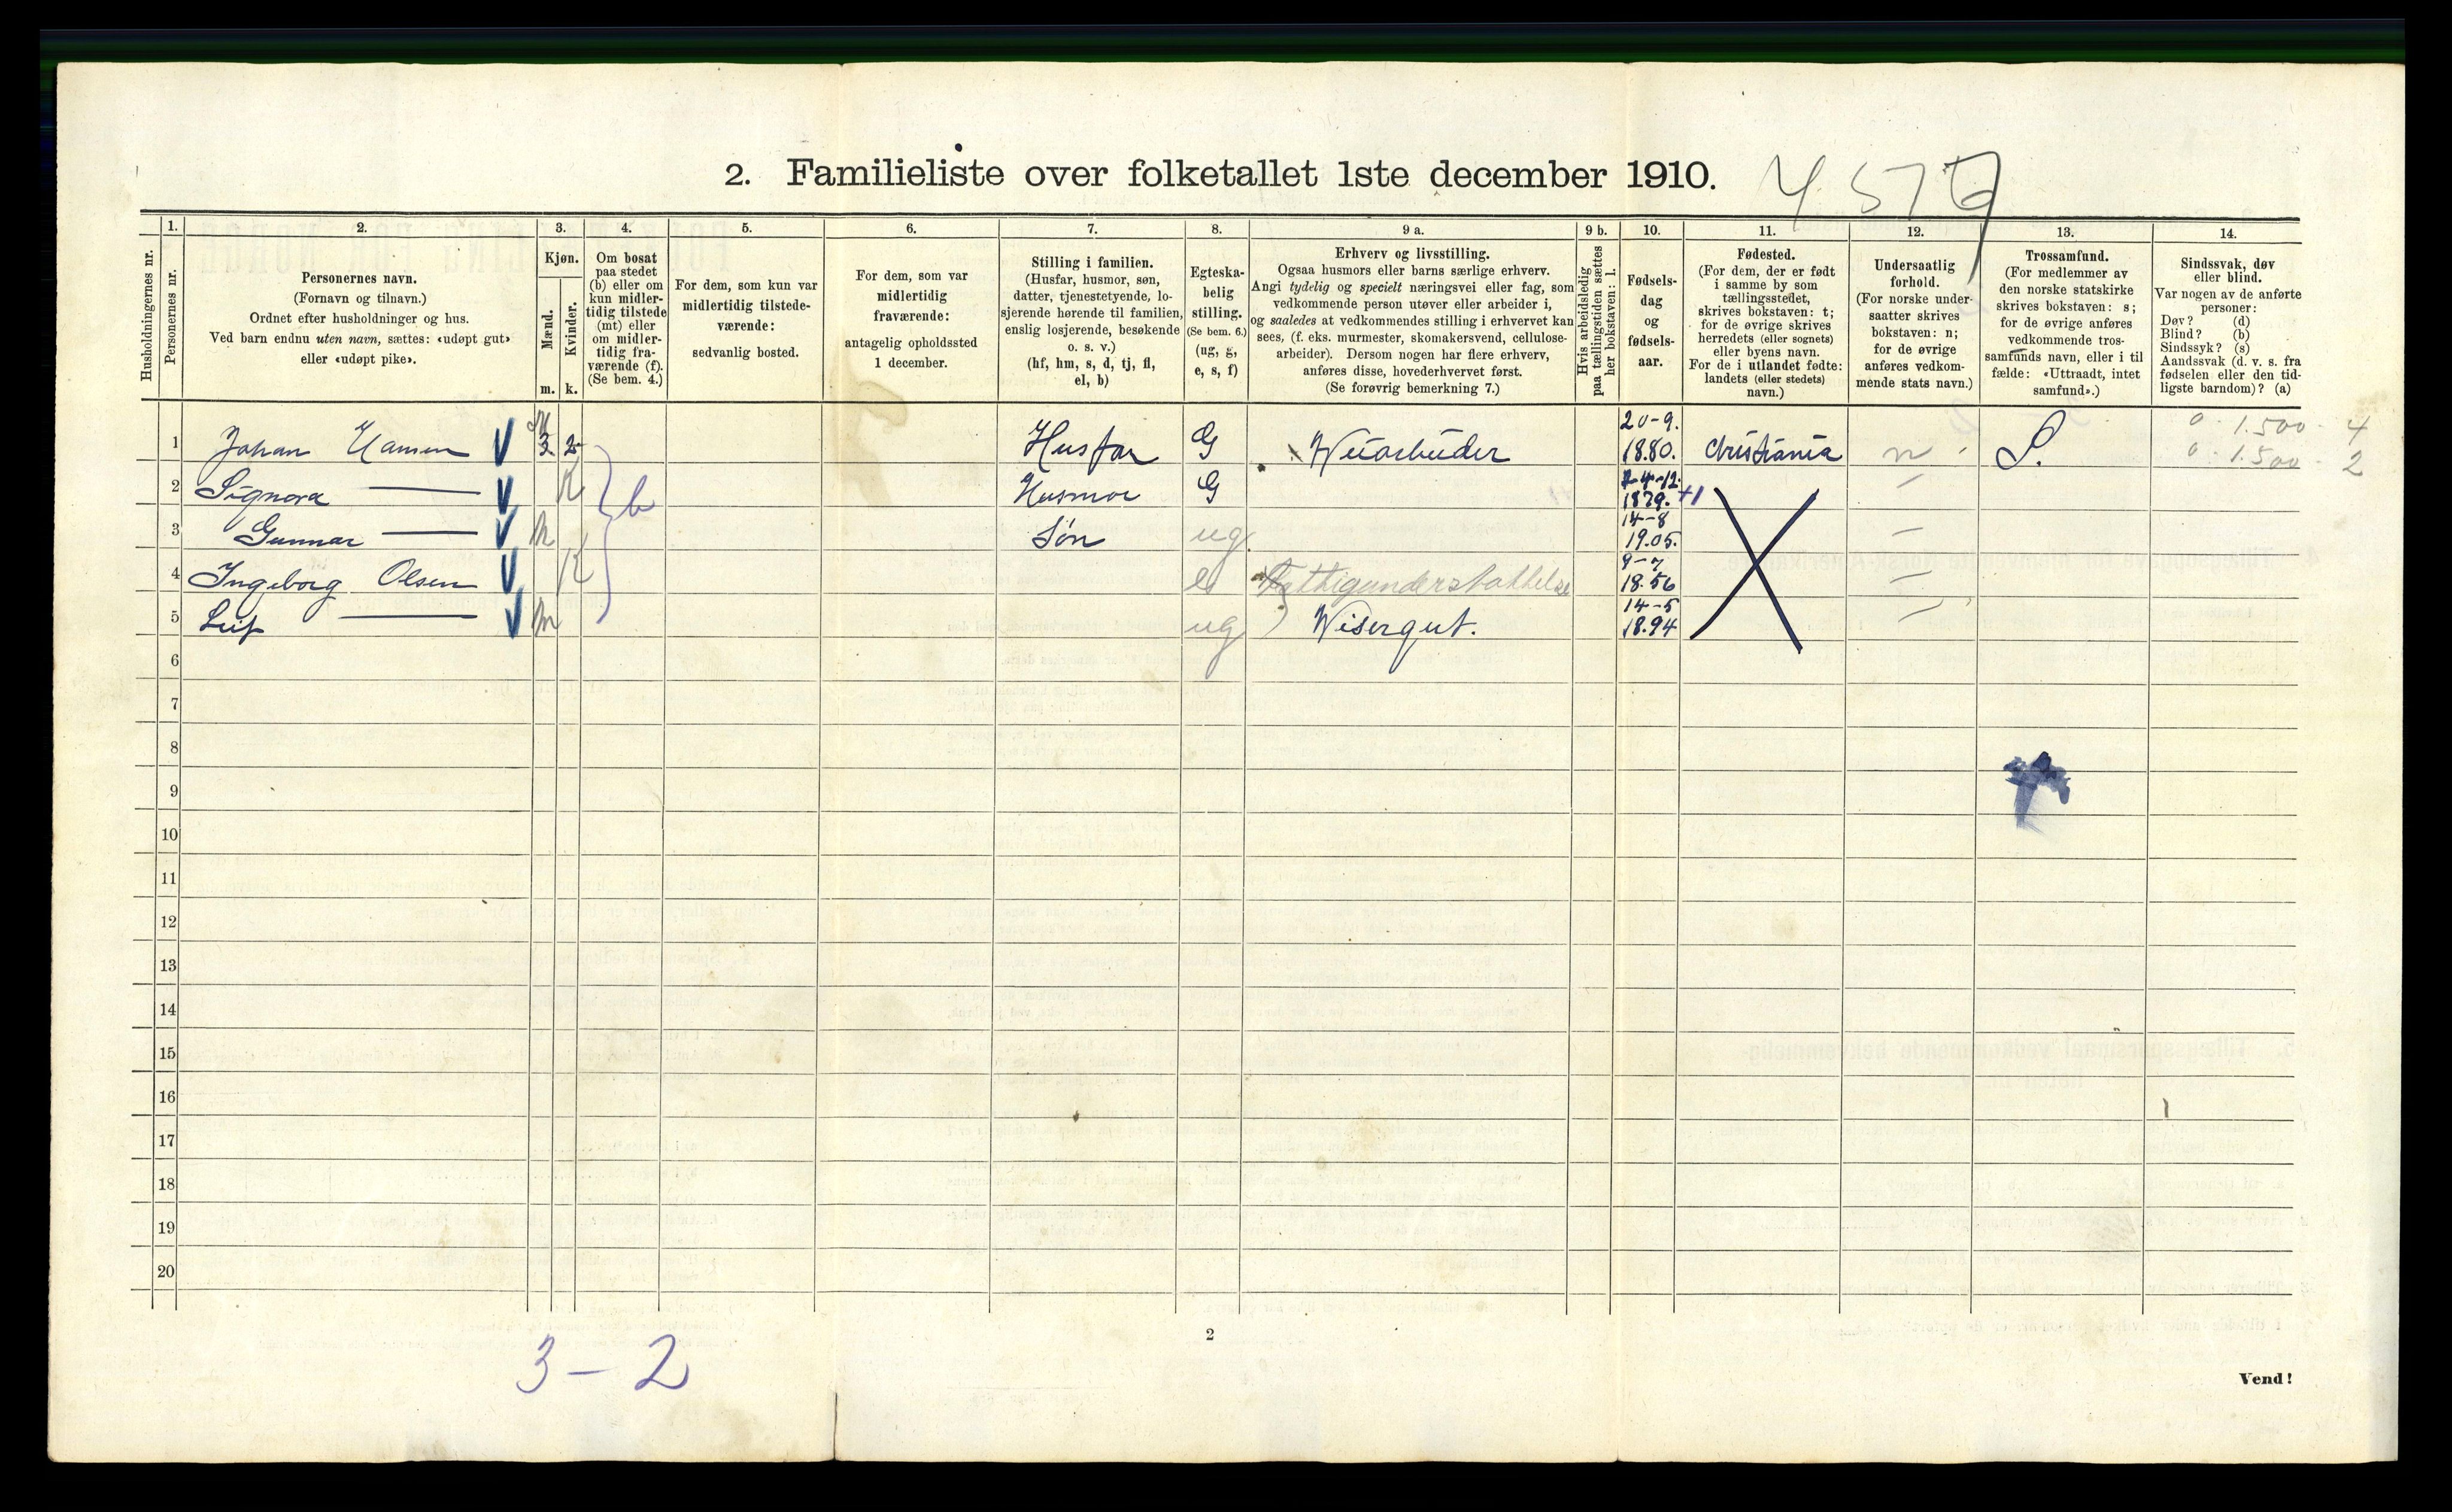 2. Familieliste over folketallet 1ste december 1910.
Husholdningernes nr.
1.
Personernes nr.
2.
Personernes navn.
(Fornavn og tilnavn.)
Ordnet efter husholdninger og hus.
Ved barn endnu uten navn, sættes: «udøpt gut»
eller «udøpt pike».
3.
Kjøn.
Mænd.
Kvinder.
m. k.
4.
Om bosat
paa stedet
(b) eller om
kun midler-
tidig tilstede
(mt) eller
om midler-
tidig fra-
værende (f).
(Se bem. 4.)
5.
For dem, som kun var
midlertidig tilstede-
værende:
sedvanlig bosted.
6.
For dem, som var
midlertidig
fraværende:
antagelig opholdssted
1 december.
7.
Stilling i familien.
(Husfar, husmor, søn,
datter, tjenestetyende, lo-
sjerende hørende til familien,
enslig losjerende, besøkende
o. s. v.)
(hf, hm, s, d, tj, fl,
el, b)
8.
Egteska-
belig
stilling.
(Se bem. 6.)
(ug, g,
e, s, f)
9 a.
Erhverv og livsstilling.
Ogsaa husmors eller barns særlige erhverv.
Angi tydelig og specielt næringsvei eller fag, som
vedkommende person utøver eller arbeider i,
og saaledes at vedkommendes stilling i erhvervet kan
sees, (f. eks. murmester, skomakersvend, cellulose-
arbeider). Dersom nogen har flere erhverv,
anføres disse, hovederhvervet først.
(Se forøvrig bemerkning 7.)
9 b.
Hvis arbeidsledig
paa tællingstiden sættes
her bokstaven: l.
10.
Fødsels-
dag
og
fødsels-
aar.
11.
Fødested.
(For dem, der er født
i samme by som
tællingsstedet,
skrives bokstaven: t;
for de øvrige skrives
herredets (eller sognets)
eller byens navn.
For de i utlandet fødte:
landets (eller stedets)
navn.)
12.
Undersaatlig
forhold.
(For norske under-
saatter skrives
bokstaven: n;
for de øvrige
anføres vedkom-
mende stats navn.)
13.
Trossamfund.
(For medlemmer av
den norske statskirke
skrives bokstaven: s;
for de øvrige anføres
vedkommende tros-
samfunds navn, eller i til
fælde: «Uttraadt, intet
samfund».)
14.
Sindssvak, døv
eller blind.
Var nogen av de anførte
personer:
Døv? (d)
Blind? (b)
Sindssyk? (s)
Aandssvak (d. v. s. fra
fødselen eller den tid-
ligste barndom)? (a)
1 Johan Hansen V 3 2 Husfar G 20-9. 1880. Christiania n S. 0 - 1.500 - 4
0 - 1.500 - 2
2 Signora — V K b Husmor G 1879. +1
3 Gunnar — V m Søn ug 14-8 1905.
4 Ingeborg Olsen V K e Fattigunderstøttelse 9-7 18.56
5 Leif — V m ug Visergut. 14-5 18.94
6
7
8
9
10
11
12
13
14
15
16
17
18
19
20
3 - 2
2
Vend!